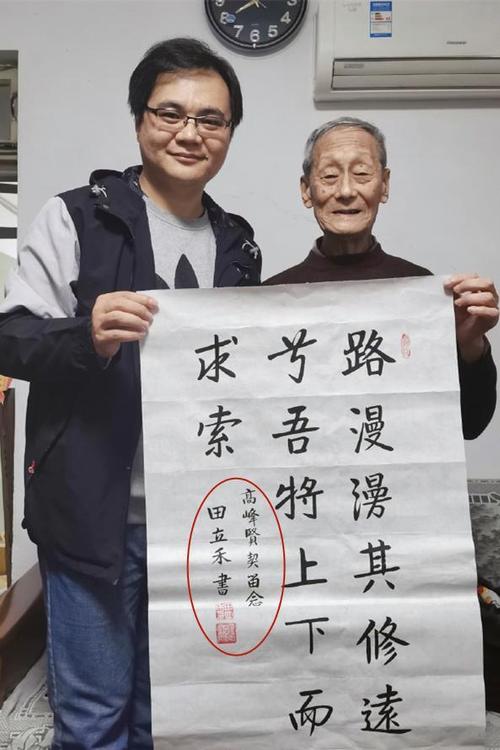 路漫漫其修遠
兮吾將上下而
求索
高峰賢契留念
田立禾書